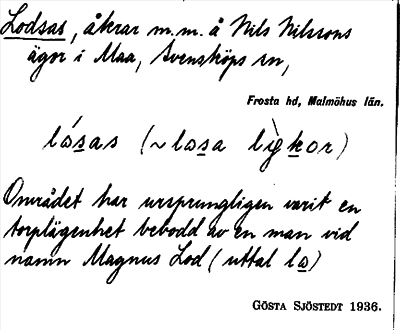 Lodsas, åkrar m.m. å Nils Nilssons
ägor i Maa, Svensköps sn,
Frosta hd, Malmöhus län.
lósas (~losa lìgkor)
Området har ursprungligen varit en
torplägenhet bebodd av en man vid
namn Magnus Lod (uttal lo)
GÖSTA SJÖSTEDT 1936.